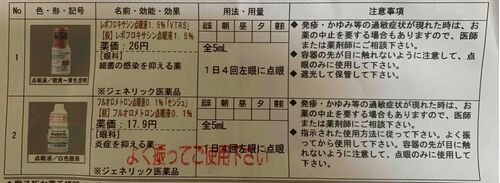 色・形・記号
名前・効能・効果
用法・用量
注意事項
起床 朝 昼 夕 寝る前
1
点眼液/微黄〜黄色澄明
レボフロキサシン点眼液1.5%「VTRS」
【般】レボフロキサシン点眼液1.5%
薬価:26円
【眼科】
細菌の感染を抑える薬
※ジェネリック医薬品
全5mL
1日4回左眼に点眼
● 発疹・かゆみ等の過敏症状が現れた時は、お薬の中止を要する場合もありますので、医師または薬剤師にご相談下さい。
● 容器の先が目に触れないように注意して、点眼のみに使用して下さい。
● 遮光して保管して下さい。
2
点眼液/白色懸濁
フルオロメトロン点眼液0.1%「センジュ」
【般】フルオロメトロン点眼液0.1%
薬価:17.9円
【眼科】
炎症を抑える薬
※ジェネリック医薬品
起床 朝 昼 夕
全5mL
1日4回左眼に点眼
よく振ってご使用下さい
● 発疹・かゆみ等の過敏症状が現れた時は、お薬の中止を要する場合もありますので、医師または薬剤師にご相談下さい。
● 指示された使用方法に従って下さい。よく振ってから使用して下さい。容器の先が目に触れないように注意して、点眼のみに使用して下さい。